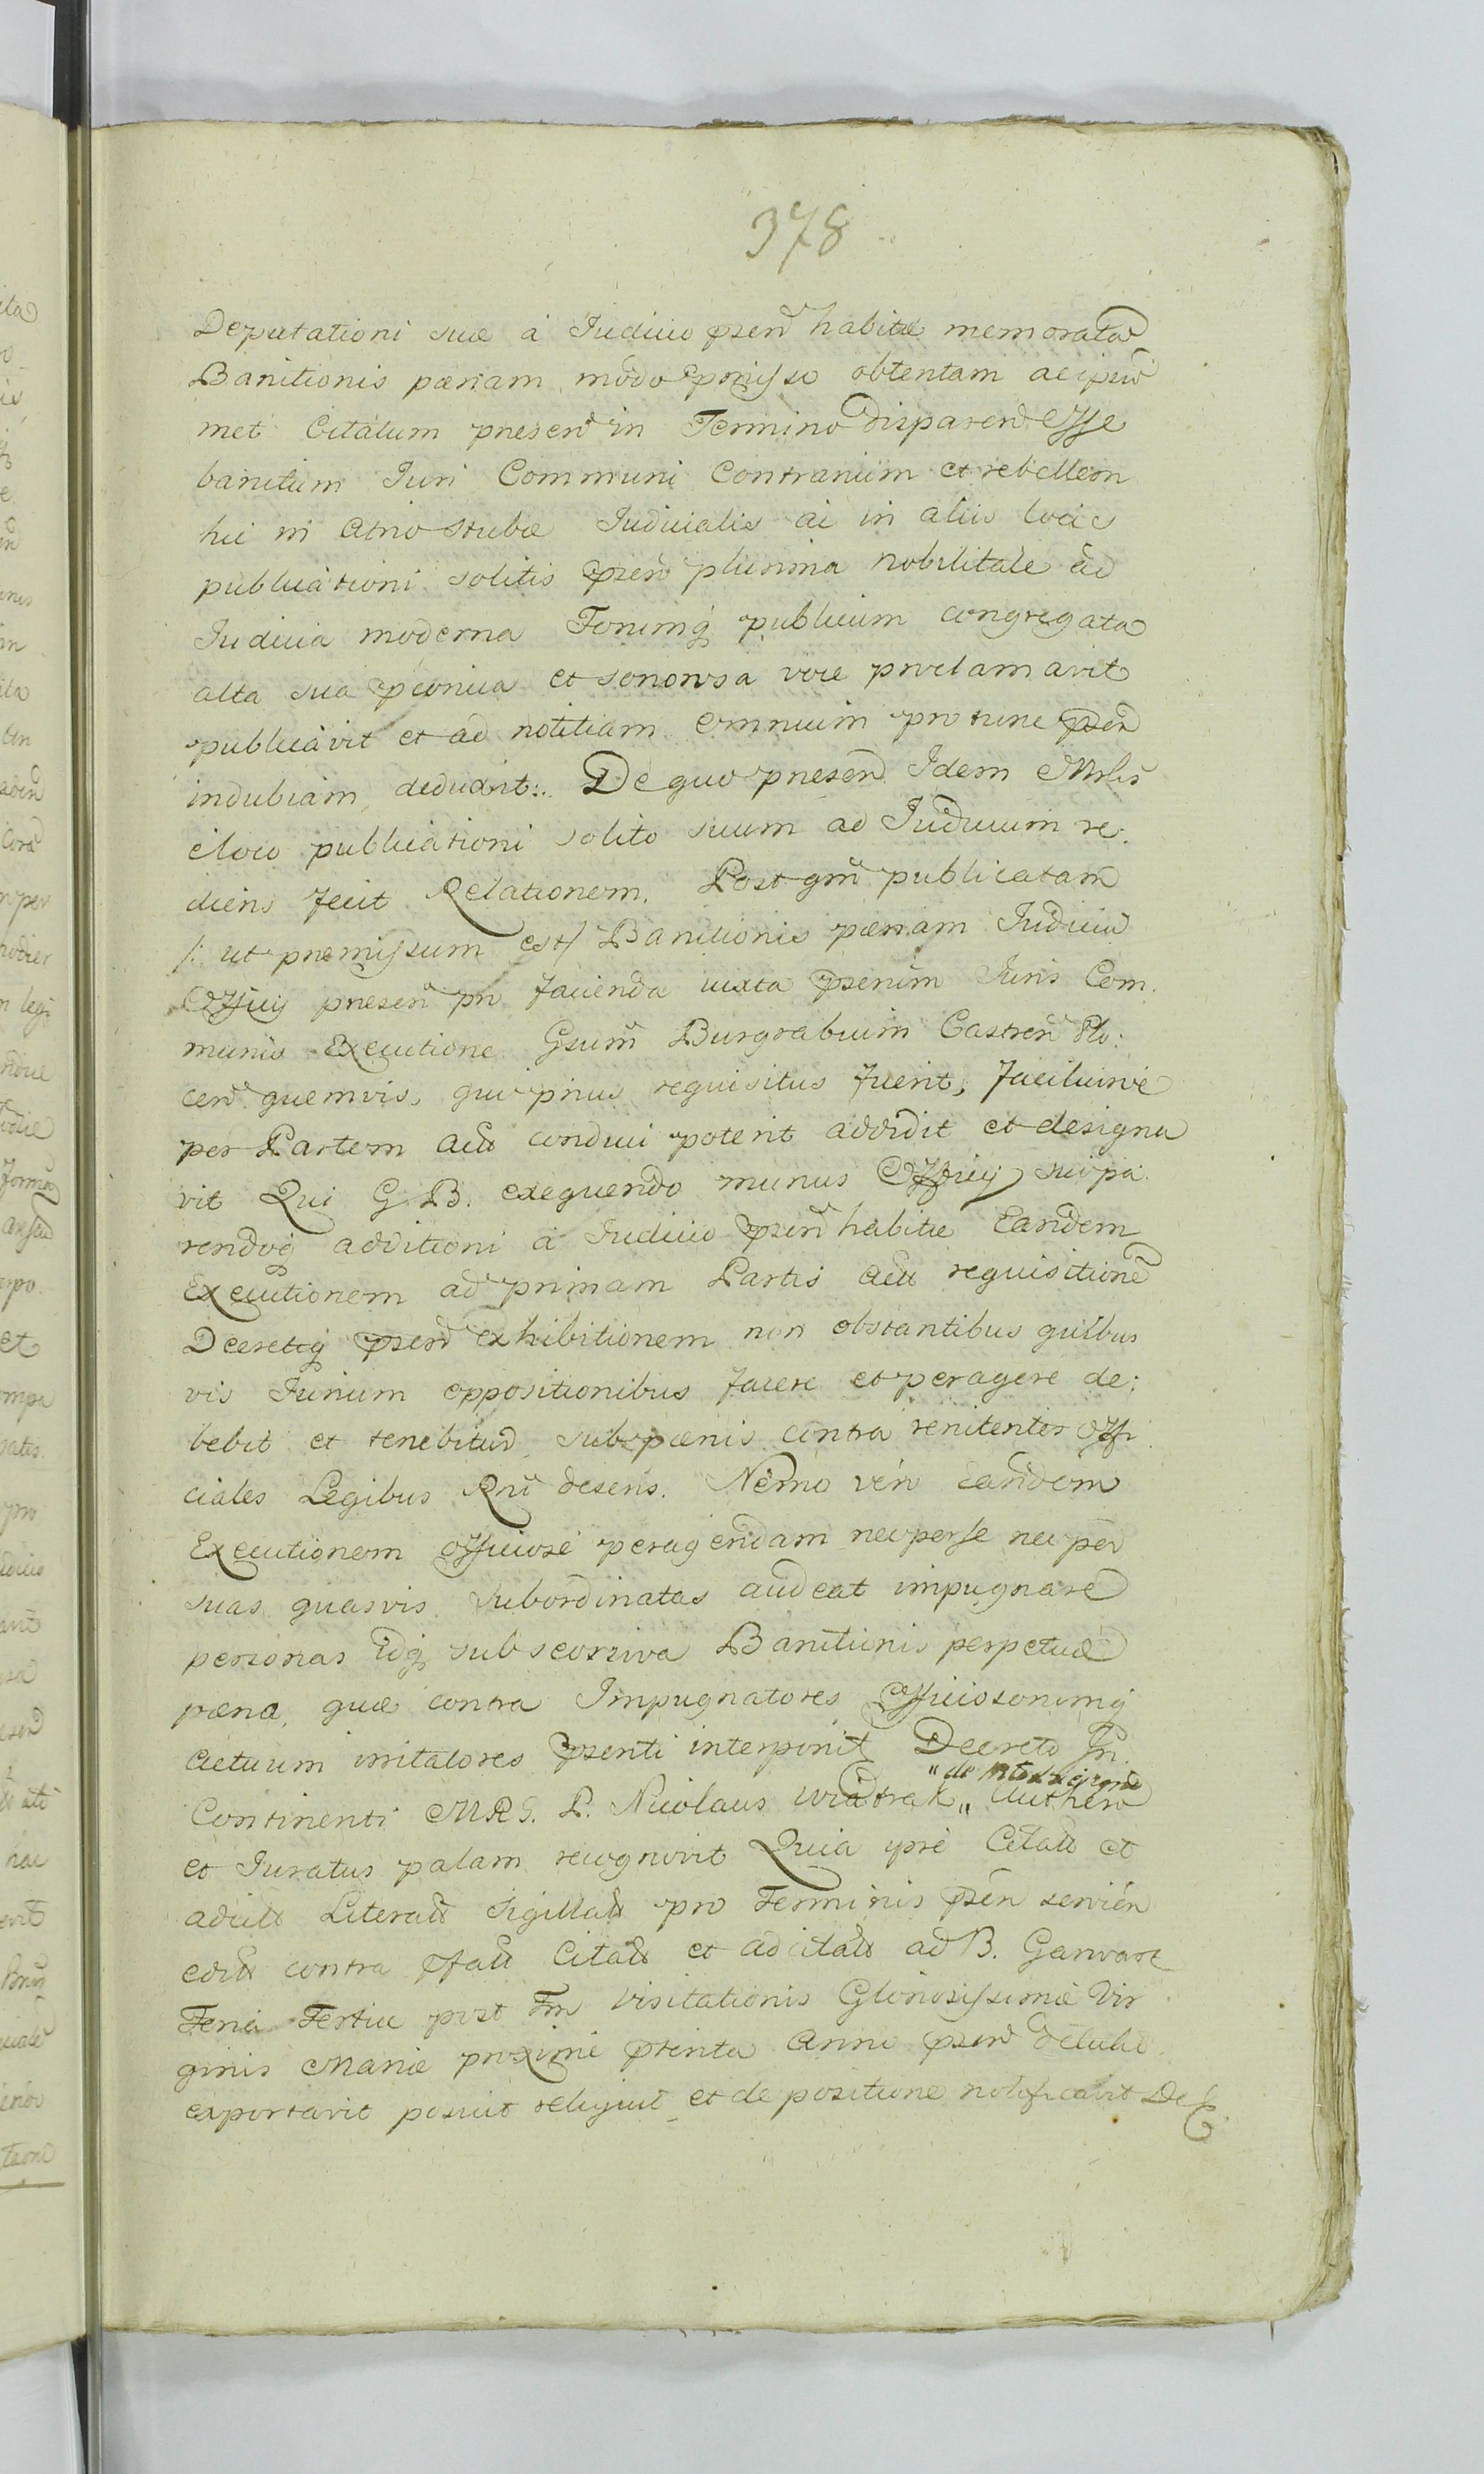 378
Deputationi suæ à Iudicio psen̄ habitæ memoratã
Banitionis pænam modo pmisso obtentam ac ipsũ
met Citatum presen̄ in Termino disparen̄ Esse
banitum Iuri Communi Contrarium et rebellem
hic in Atrio Stubæ Iudicialis ac in aliis locis
publicationi solitis psen̄ plurima nobilitate ad
Iudicia moderna Forumq̨ publicum congregata
alta sua pconica et sonorosa voce proclamavit
publicavit et ad notitiam Omnium pro tunc psen̄
indubiam deduxit:. De quo presen̄ Idem Mrlis
e loco publicationi solito suum ad Iudicium re.
diens fecit Relationem. Post qm̄ publicatam
/: ut premissum est/ Banitionis pænam Iudiciũ
Officij presen̄ pro facienda iuxta psenim Iuris Com.
munis Executione Gsum̄ Burgrabium Castren̄ Plo:
cen̄ quemvis, qui prius requisitus fuerit, faciliusve
per Partem Act̃ conduci poterit addidit et designa
vit Qui G. B. exequendo munus Officij sui pa.
rendoq̨ additioni à Iudicio psen̄ habitæ Eandem
Executionem ad primam Partis Act̃ requisitionẽ
Decretiq̨ psen̄ exhibitionem non obstantibus quibus
vis Iurium oppositionibus facere et peragere de:
bebit et tenebitur sub pænis contra renitentes Offi
ciales Legibus Rni desens. Nemo vero eandem
Executionem officiose peragendam nec per se nec per
suas quasvis subordinatas audeat impugnare
personas idq̨ sub seorsiva Banitionis perpetuæ
pæna, quæ contra Impugnatores Officiosorumq̨
Actuum irritatores psenti interponit̃ Decreto In.
"de
Continenti MRG. P. Nicolaus Wiatrak „ Authen̄
et Iuratus palam recognovit Quia ipse Citat̃ et
adcit̃ Literat̃ Sigillat̃ pro Terminis psen̄ servien̄
edit̃ contra pfat̃ Citat̃ et adcitat̃ ad B. Garwarz
Feria Tertia post Fm̄ Visitationis Gloriosissimæ Vir
ginis Mariæ proxime pterita Anni psen̄
exportavit posuit reliquit et de positione notificavit De E.